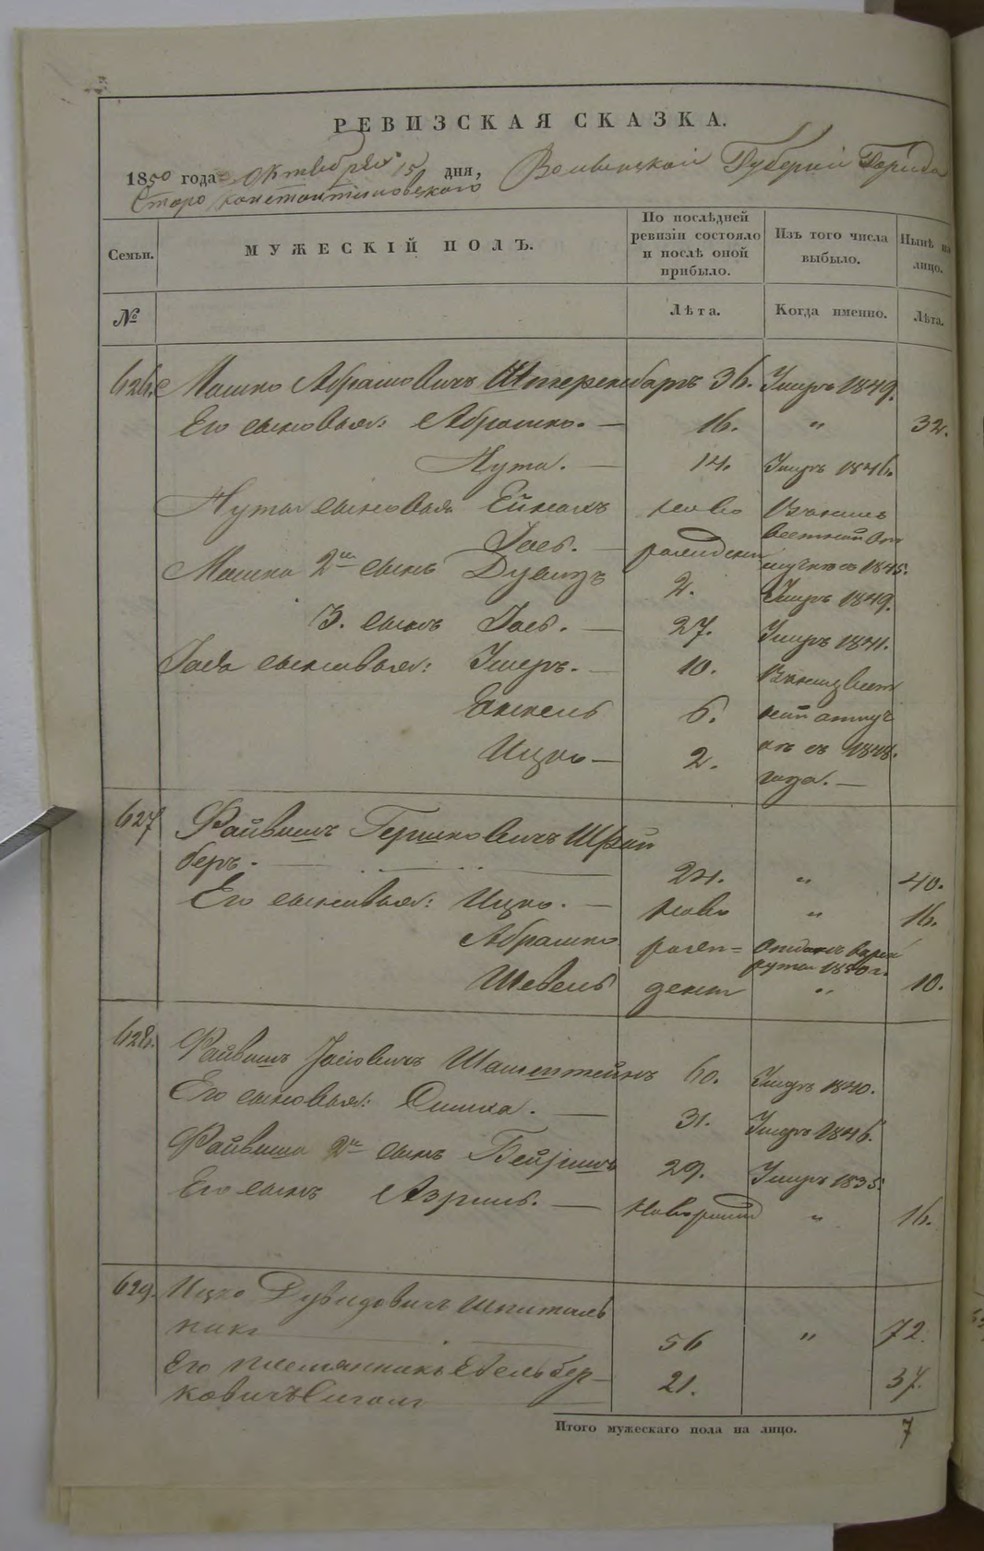 РЕВИЗСКАЯ СКАЗКА.
1850 года Октября 15 дня, Волынской Губернии Города
Старо Константиновского
Семьи.
МУЖЕСКІЙ ПОЛЪ.
По послѣдней ревизіи состояло и послѣ оной прибыло.
Изъ того числа выбыло.
Нынѣ на лицо.
№
Лѣта.
Когда именно.
Лѣта.
626. Мошко Абрамовичъ Штеренбаръ 36. Умеръ 1849.
Его сыновья: Абрашко. — 16. " 32.
Нута. — 14. Умеръ 1846.
Нуты сыновья Ейналъ ново
Іось. —
Мошка 2й сынъ Дувидъ 2. Умеръ 1849.
3. сынъ Іось. — 27. Умеръ 1841.
Іося сыновья: Умеръ. — 10.
Енкель 6.
Ицко — 2. года. —
627 Файвишъ Гершковичъ Шрай
беръ. — 24. " 40.
Его сыновья: Ицко. — ново " 16.
Абрашко 1850 г.
Шевель " 10.
628. Файвишъ Іосіовичъ 60. Умеръ 1840.
Его сыновья: Симха. — 31. Умеръ 1846.
Файвиша 2й сынъ Бейришъ 29. Умеръ 1835.
Его сынъ Азриль. — " 16.
629. Ицко Дувидовичъ Шпиталь
никъ 56 " 72.
Его племянникъ Бер-
ковичъ 21. 37.
Итого мужескаго пола на лицо. 7